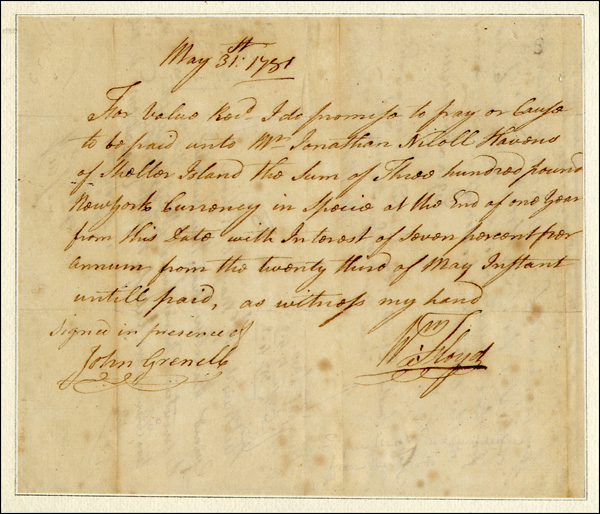 May 31st 1781
For Value Recd I do promise to pay or Cause
to be paid unto Mr Jonathan Nicoll Havens
of Shelter Island the Sum of Three hundred pound
Newyork Currency in Specie at the End of one Year
from this Date with Interest of Seven percent per
annum from the twenty third of May Instant
untill paid, as witness my hand
Signed in presence of
John Grenell
Wm Floyd